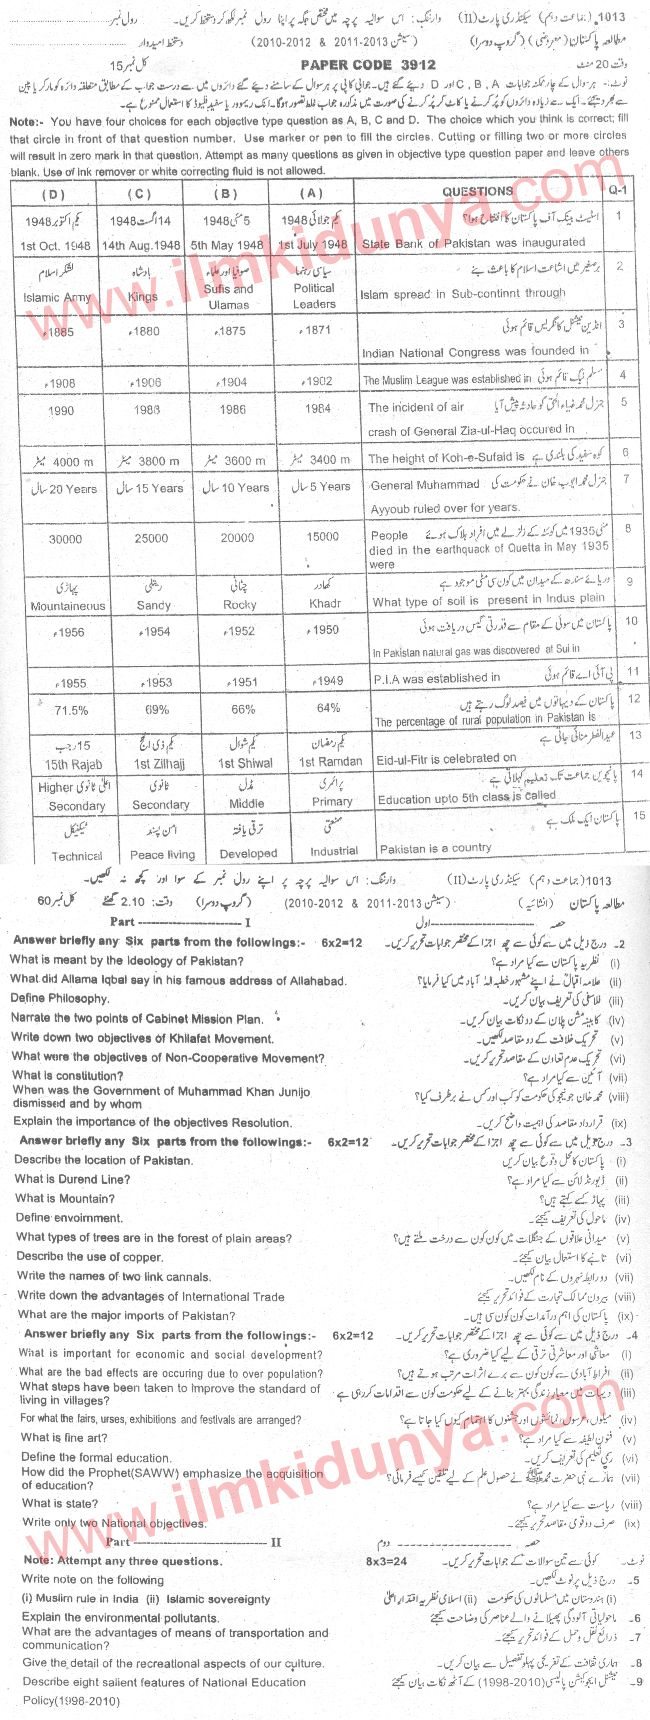 1013 (جماعت دہم) سیکنڈری پارٹ (II) وارننگ: اس سوالیہ پرچہ میں مختص جگہ پر اپنا رول نمبر لکھ کر دستخط کریں۔ رول نمبر
مطالعہ پاکستان (معروضی) (گروپ دوسرا) (سیشن 2013-2011 & 2012-2010) دستخط امیدوار
وقت 20 منٹ PAPER CODE 3912 کل نمبر 15
نوٹ:- ہر سوال کے چار ممکنہ جوابات A, B, C اور D دیئے گئے ہیں۔ جوابی کاپی پر ہر سوال کے سامنے دیئے گئے دائروں میں سے درست جواب کے مطابق متعلقہ دائرہ کو مارکر یا پین
سے بھر دیجئے۔ ایک سے زیادہ دائروں کو پُر کرنے یا کاٹ کر پُر کرنے کی صورت میں مذکورہ جواب غلط تصور ہوگا۔ انک ریموور یا سفید فلیوڈ کا استعمال ممنوع ہے۔
Note:- You have four choices for each objective type question as A, B, C and D. The choice which you think is correct; fill
that circle in front of that question number. Use marker or pen to fill the circles. Cutting or filling two or more circles
will result in zero mark in that question. Attempt as many questions as given in objective type question paper and leave others
blank. Use of ink remover or white correcting fluid is not allowed.
(D) (C) (B) (A) QUESTIONS Q-1
یکم اکتوبر 1948 14 اگست 1948 5 مئی 1948 یکم جولائی 1948 اسٹیٹ بینک آف پاکستان کا افتتاح ہوا؟ 1
1st Oct. 1948 14th Aug.1948 5th May 1948 1st July 1948 State Bank of Pakistan was inaugurated
لشکر اسلام بادشاہ صوفیا اور علماء سیاسی رہنما برصغیر میں اشاعت اسلام کا باعث بنے 2
Islamic Army Kings Sufis and Ulamas Political Leaders Islam spread in Sub-continnt through
1885ء 1880ء 1875ء 1871ء انڈین نیشنل کانگریس قائم ہوئی 3
Indian National Congress was founded in
1908ء 1906ء 1904ء 1902ء The Muslim League was established in مسلم لیگ قائم ہوئی 4
1990 1988 1986 1984 The incident of air جنرل محمد ضیاء الحق کو حادثہ پیش آیا 5
crash of General Zia-ul-Haq occured in
4000 m میٹر 3800 m میٹر 3600 m میٹر 3400 m میٹر The height of Koh-e-Sufaid is کوہ سفید کی بلندی ہے 6
20 Years سال 15 Years سال 10 Years سال 5 Years سال General Muhammad جنرل محمد ایوب خان نے حکومت کی 7
Ayyoub ruled over for years.
30000 25000 20000 15000 People مئی 1935 میں کوئٹہ کے زلزلے میں افراد ہلاک ہوئے 8
died in the earthquack of Quetta in May 1935
were
پہاڑی ریتلی چٹانی کھادر دریائے سندھ کے میدان میں کون سی مٹی موجود ہے 9
Mountaineous Sandy Rocky Khadr What type of soil is present in Indus plain
1956ء 1954ء 1952ء 1950ء پاکستان میں سوئی کے مقام سے قدرتی گیس دریافت ہوئی 10
In Pakistan natural gas was discovered at Sui in
1955ء 1953ء 1951ء 1949ء P.I.A was established in پی آئی اے قائم ہوئی 11
71.5% 69% 66% 64% پاکستان کے دیہاتوں میں فیصد لوگ رہتے ہیں 12
The percentage of rural population in Pakistan is
15 رجب یکم ذی الحج یکم شوال یکم رمضان عیدالفطر منائی جاتی ہے 13
15th Rajab 1st Zilhajj 1st Shiwal 1st Ramdan Eid-ul-Fitr is celebrated on
اعلیٰ ثانوی Higher ثانوی مڈل پرائمری پانچویں جماعت تک تعلیم کہلاتی ہے 14
Secondary Secondary Middle Primary Education upto 5th class is called
ٹیکنیکل امن پسند ترقی یافتہ صنعتی پاکستان ایک ملک ہے 15
Technical Peace living Developed Industrial Pakistan is a country
1013 (جماعت دہم) سیکنڈری پارٹ (II) وارننگ: اس سوالیہ پرچہ پر اپنے رول نمبر کے سوا اور کچھ نہ لکھیں۔
مطالعہ پاکستان (انشائیہ) (سیشن 2013-2011 & 2012-2010) (گروپ دوسرا) وقت: 2.10 گھنٹے کل نمبر 60
Part ------------------------ I حصہ ------------------------ اول
Answer briefly any Six parts from the followings:- 6x2=12 2۔ درج ذیل میں سے کوئی سے چھ اجزا کے مختصر جوابات تحریر کریں۔
What is meant by the Ideology of Pakistan? (i) نظریہ پاکستان سے کیا مراد ہے؟
What did Allama Iqbal say in his famous address of Allahabad. (ii) علامہ اقبالؒ نے اپنے مشہور خطبہ الہٰ آباد میں کیا فرمایا؟
Define Philosophy. (iii) فلاسفی کی تعریف بیان کریں۔
Narrate the two points of Cabinet Mission Plan. (iv) کابینہ مشن پلان کے دو نکات بیان کریں۔
Write down two objectives of Khilafat Movement. (v) تحریک خلافت کے دو مقاصد لکھیں۔
What were the objectives of Non-Cooperative Movement? (vi) تحریک عدم تعاون کے مقاصد تحریر کریں۔
What is constitution? (vii) آئین سے کیا مراد ہے؟
When was the Government of Muhammad Khan Junijo (viii) محمد خان جونیجو کی حکومت کو کب اور کس نے برطرف کیا؟
dismissed and by whom
Explain the importance of the objectives Resolution. (ix) قرارداد مقاصد کی اہمیت واضح کریں۔
Answer briefly any Six parts from the followings:- 6x2=12 3۔ درج ذیل میں سے کوئی سے چھ اجزا کے مختصر جوابات تحریر کریں۔
Describe the location of Pakistan. (i) پاکستان کا محل وقوع بیان کریں
What is Durend Line? (ii) ڈیورنڈ لائن سے کیا مراد ہے؟
What is Mountain? (iii) پہاڑ کسے کہتے ہیں؟
Define envoirnment. (iv) ماحول کی تعریف کیجئے۔
What types of trees are in the forest of plain areas? (v) میدانی علاقوں کے جنگلات میں کون کون سے درخت ملتے ہیں؟
Describe the use of copper. (vi) تانبے کا استعمال بیان کیجئے۔
Write the names of two link cannals. (vii) دو رابطہ نہروں کے نام لکھیں۔
Write down the advantages of International Trade (viii) بیرون ممالک تجارت کے فوائد تحریر کیجئے
What are the major imports of Pakistan? (ix) پاکستان کی اہم درآمدات کون کون سی ہیں۔
Answer briefly any Six parts from the followings:- 6x2=12 4۔ درج ذیل میں سے کوئی سے چھ اجزا کے مختصر جوابات تحریر کریں۔
What is important for economic and social development? (i) معاشی اور معاشرتی ترقی کے لیے کیا ضروری ہے؟
What are the bad effects are occuring due to over population? (ii) افراط آبادی سے کون کون سے برے اثرات مرتب ہوتے ہیں؟
What steps have been taken to improve the standard of (iii) دیہات میں معیار زندگی بہتر بنانے کے لیے حکومت کون سے اقدامات کر رہی ہے
living in villages?
For what the fairs, urses, exhibitions and festivals are arranged? (iv) میلوں، عرسوں، نمائشوں اور جشنوں کا اہتمام کیوں کیا جاتا ہے؟
What is fine art? (v) فنون لطیفہ سے کیا مراد ہے؟
Define the formal education. (vi) رسمی تعلیم کی تعریف کریں۔
How did the Prophet(SAWW) emphasize the acquisition (vii) ہمارے نبی حضرت محمد ﷺ نے حصول علم کے لیے تلقین کیسے فرمائی؟
of education?
What is state? (viii) ریاست سے کیا مراد ہے؟
Write only two National objectives. (ix) صرف دو قومی مقاصد تحریر کیجئے۔
Part ------------------------ II حصہ ------------------------ دوم
Note: Attempt any three questions. 8x3=24 نوٹ۔ کوئی سے تین سوالات کے جوابات تحریر کریں۔
Write note on the following 5۔ درج ذیل پر نوٹ لکھیں۔
(i) Muslim rule in India (ii) Islamic sovereignty (i) ہندوستان میں مسلمانوں کی حکومت (ii) اسلامی نظریہ اقتدار اعلیٰ
Explain the environmental pollutants. 6۔ ماحولیاتی آلودگی پھیلانے والے عناصر کی وضاحت کیجئے
What are the advantages of means of transportation and 7۔ ذرائع نقل و حمل کے فوائد تحریر کیجئے۔
communication?
Give the detail of the recreational aspects of our culture. 8۔ ہماری ثقافت کے تفریحی پہلو تفصیل سے بیان کریں۔
Describe eight salient features of National Education 9۔ نیشنل ایجوکیشن پالیسی (1998-2010) کے آٹھ نکات بیان کیجئے
Policy(1998-2010)
www.ilmkidunya.com
www.ilmkidunya.com